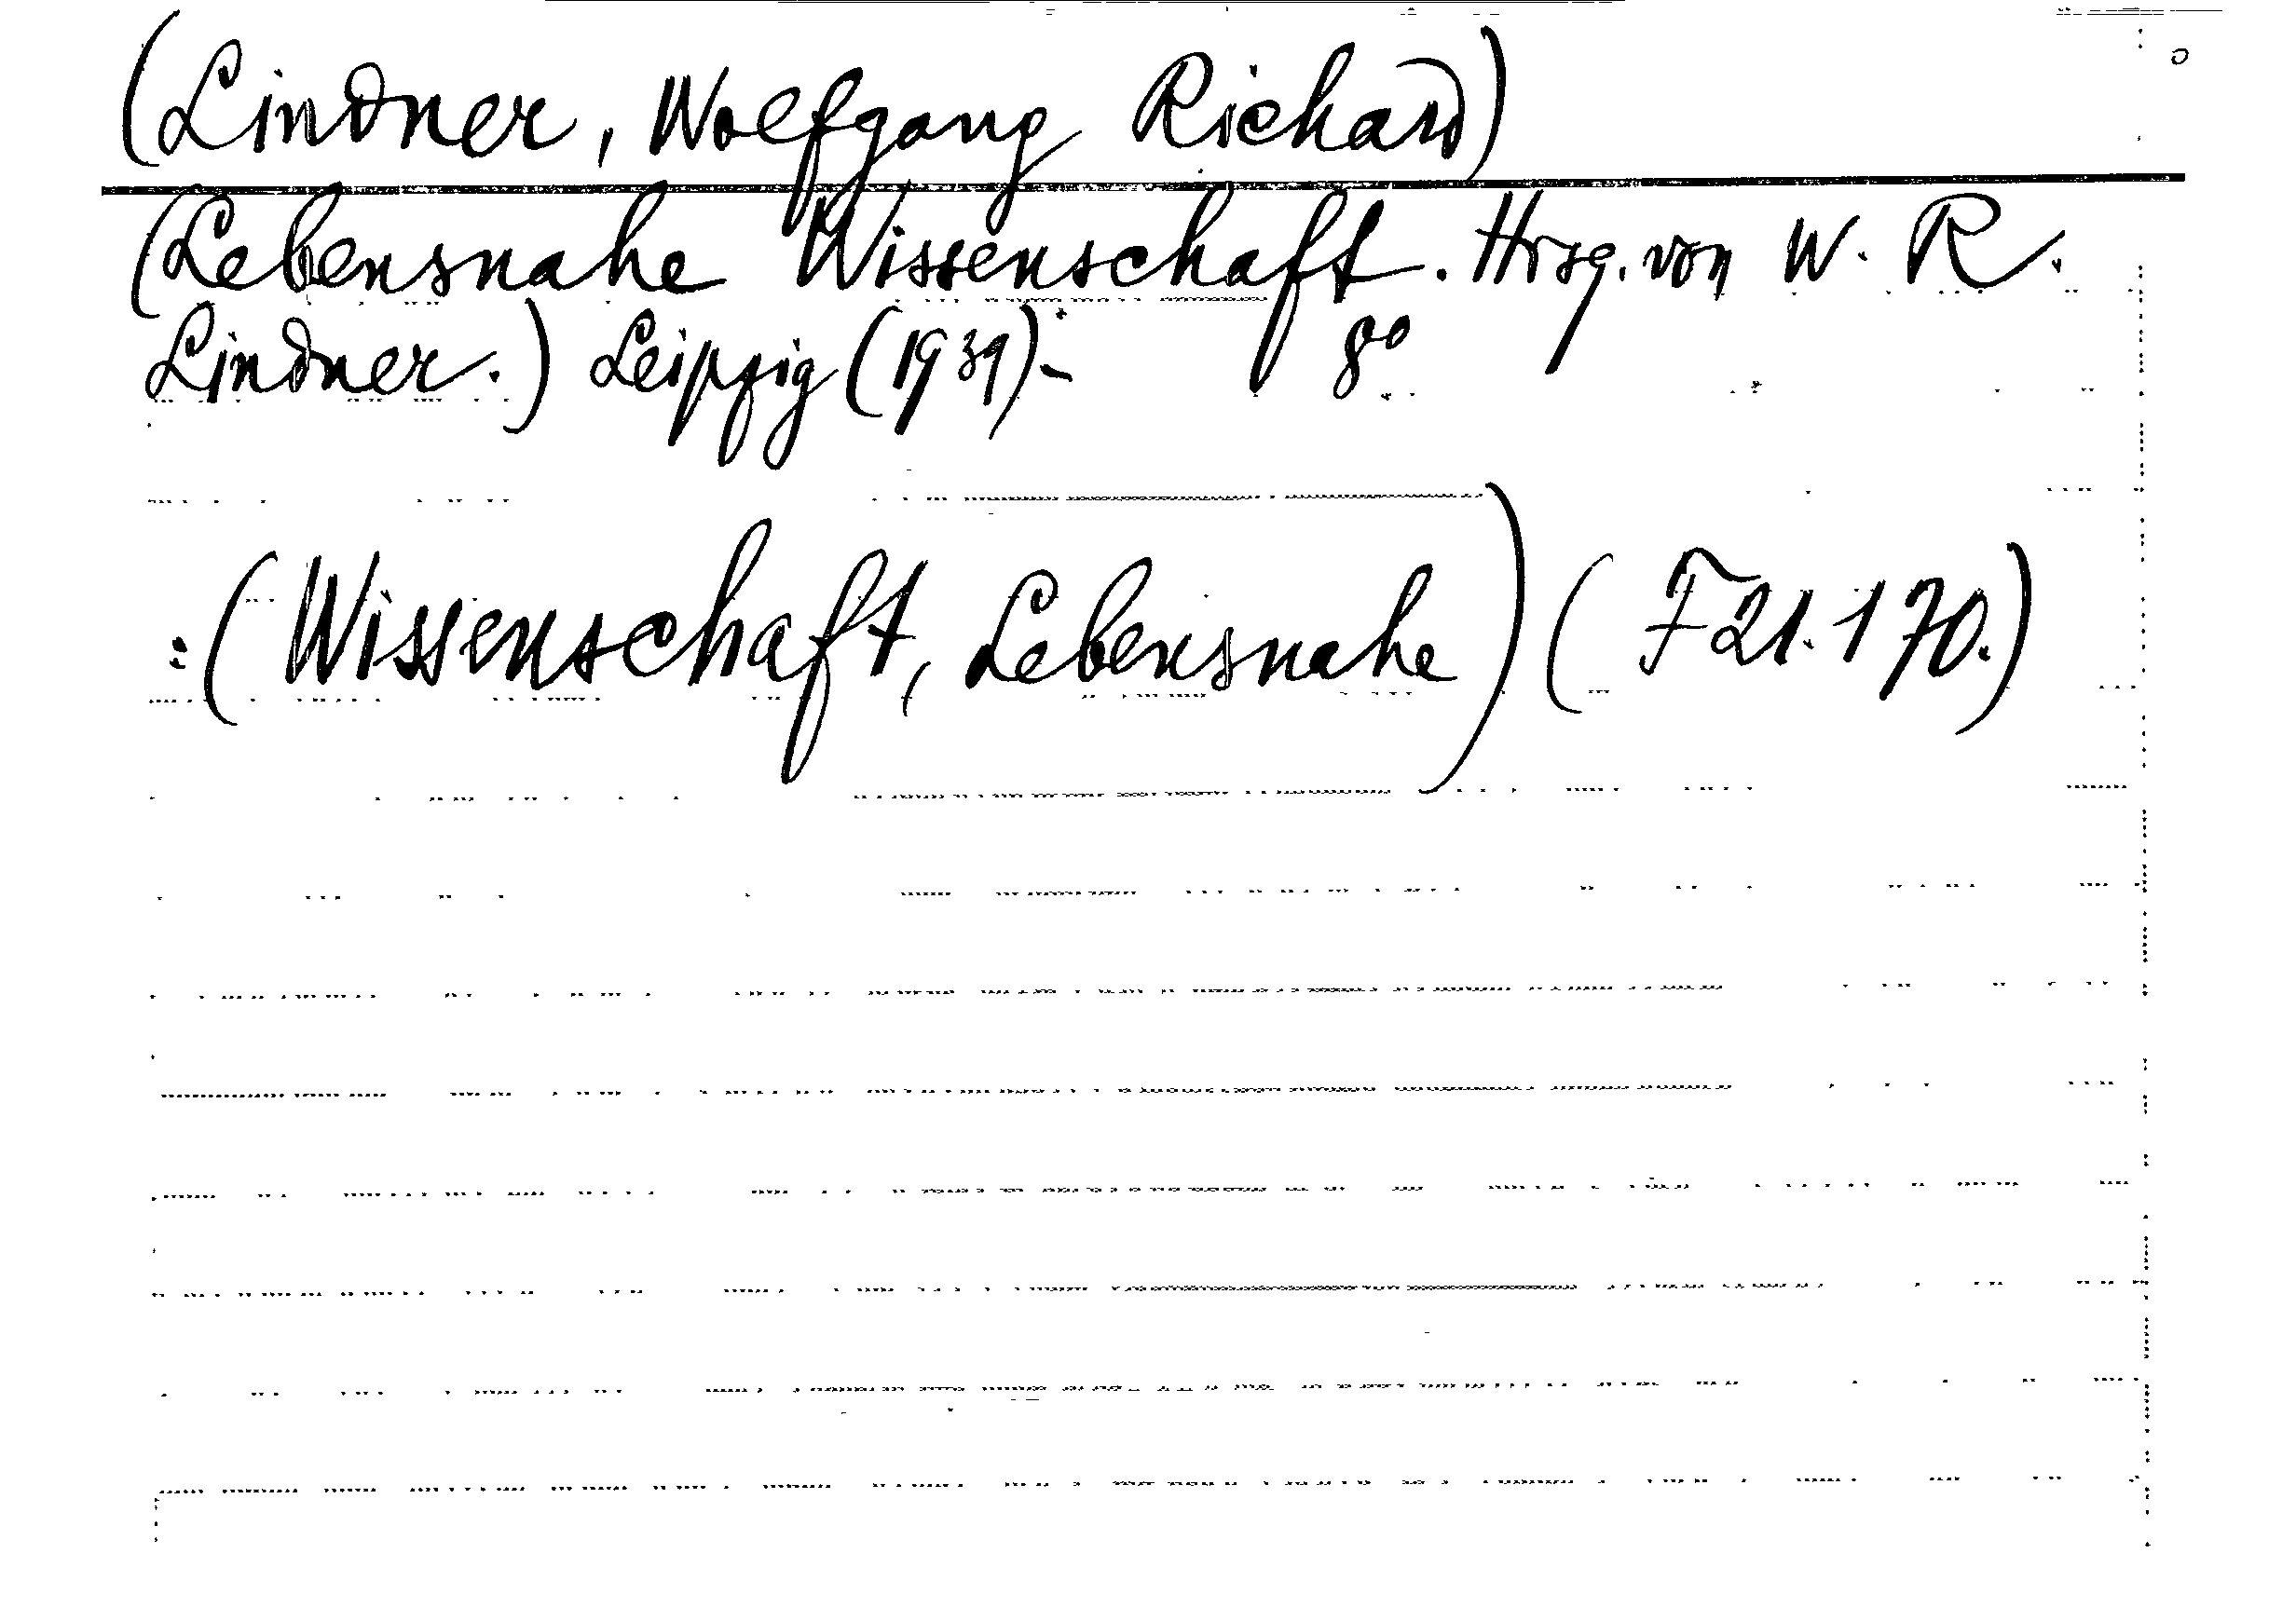 (Lindner, Wolfgang Richard)
(Lebensnahe Wissenschaft. Hrsg. von W. R.
Lindner.) Leipzig (1939)- 8°
:(Wissenschaft, Lebensnahe) (F21.170.)